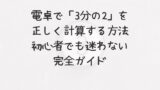 電卓で「3分の2」を
正しく計算する方法
初心者でも迷わない
完全ガイド